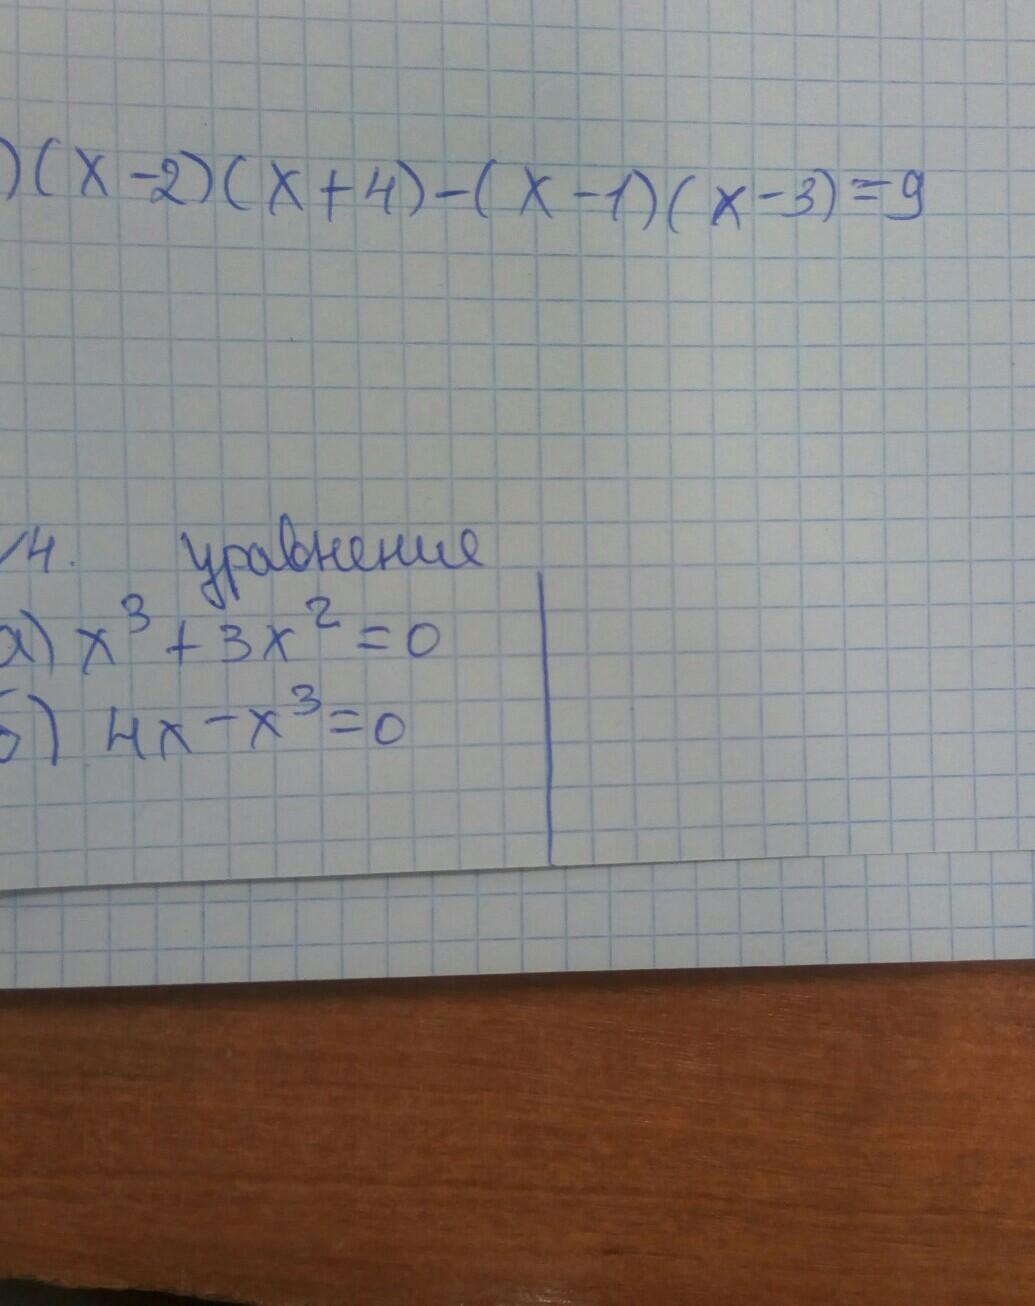 )(x-2)(x+4)-(x-1)(x-3)=9
4. уравнение
а) x³+3x²=0
б) 4x-x³=0